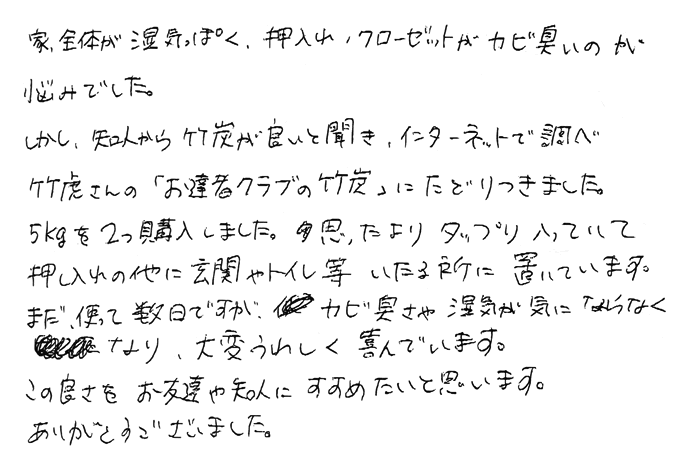 家全体が湿気っぽく、押入れ、クローゼットがカビ臭いのが
悩みでした。
しかし、知人から竹炭が良いと聞き、インターネットで調べ
竹虎さんの「お達者クラブの竹炭」にたどりつきました。
5kgを2つ購入しました。思ったよりタップリ入っていて
押し入れの他に玄関やトイレ等いたる所に置いています。
まだ、使って数日ですが、カビ臭さや湿気が気にならなく
なり、大変うれしく喜んでいます。
この良さをお友達や知人にすすめたいと思います。
ありがとうございました。